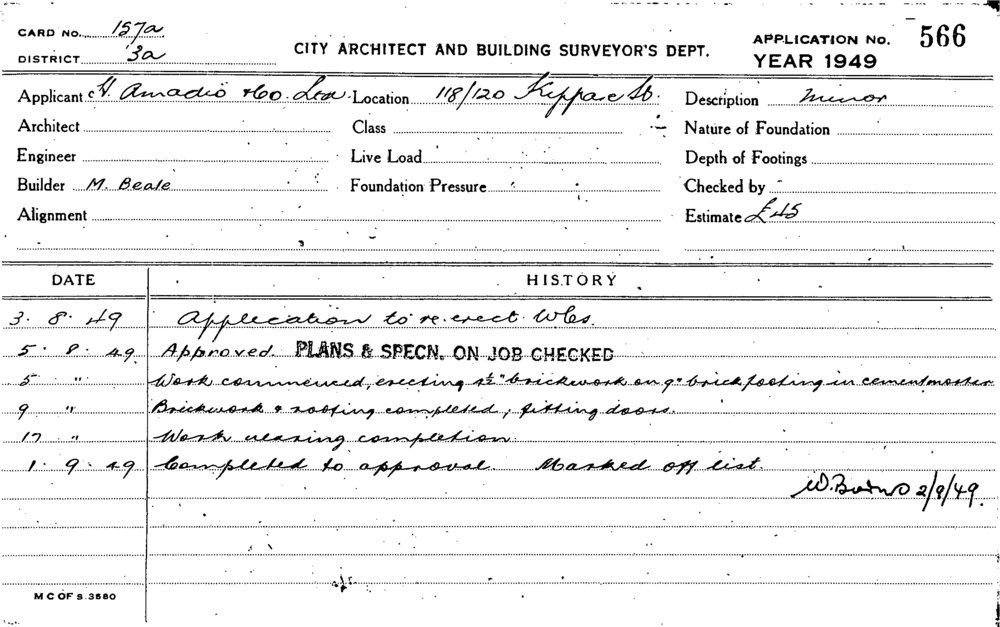 CARD No. 157a
DISTRICT 3a
CITY ARCHITECT AND BUILDING SURVEYOR'S DEPT.
APPLICATION No. 566
YEAR 1949
Applicant H. Amadio & Co. Location 118/120 Kippax St. Description Minor
Architect Class Nature of Foundation
Engineer Live Load Depth of Footings
Builder M. Beale Foundation Pressure Checked by
Alignment Estimate £45
DATE HISTORY
3. 8. 49 Application to re-erect W.Cs.
5. 8. 49. Approved. PLANS & SPECN. ON JOB CHECKED
5 " Work commenced, erecting 4½" brickwork on 9" brick footing in cement mortar
9 " Brickwork & roofing completed, fitting doors.
17 " Work nearing completion.
1. 9. 49 Completed to approval. Marked off list.
2/9/49.
M C OF S. 3580